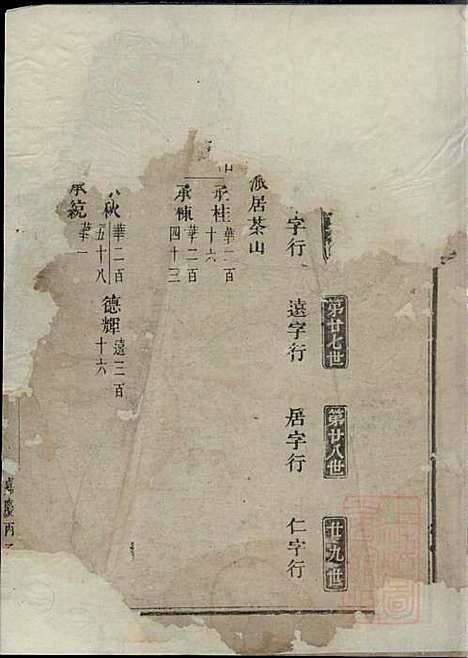 第廿七世
第廿八世
廿九世
字行
遠字行
居字行
仁字行
派居茶山
承桂
華二百
十六
承棟
華二百
四十三
秋
華二百
五十八
德輝
遠三百
十六
承統
華一
嘉慶丙子